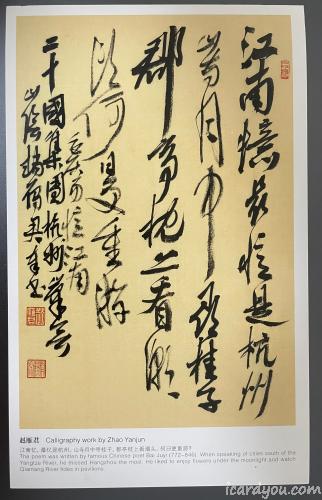 江南憶最憶是杭州
山寺月中尋桂子
郡亭枕上看潮
頭何日更重游
白居易憶江南
二十國集團杭州峰會
山陰
赵雁君 Calligraphy work by Zhao Yanjun
江南忆，最忆是杭州；山寺月中寻桂子，郡亭枕上看潮头。何日更重游？
The poem was written by famous Chinese poet Bai Juyi (772–846). When speaking of cities south of the
Yangtze River, he missed Hangzhou the most. He liked to enjoy flowers under the moonlight and watch
Qiantang River tides in pavilions.
icardyou.com